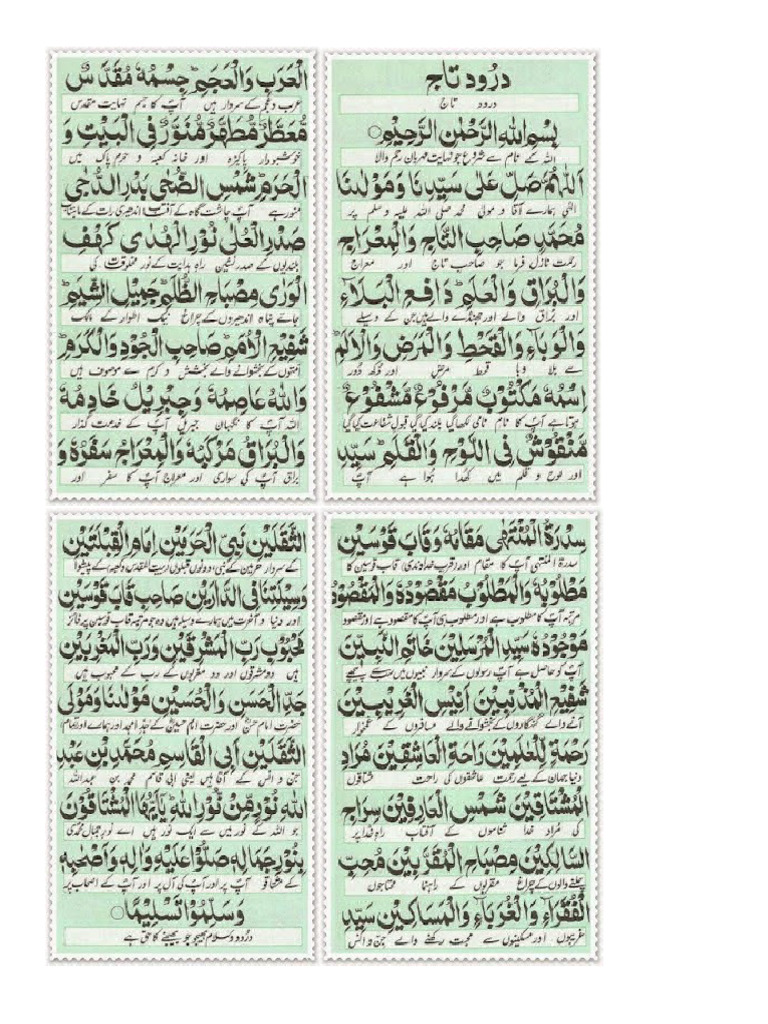 درود تاج
درود تاج
بِسْمِ اللهِ الرَّحْمٰنِ الرَّحِيْمِ
اللہ کے نام سے شروع جو نہایت مہربان رحم والا
اَللّٰهُمَّ صَلِّ عَلٰى سَيِّدِنَا وَمَوْلٰىنَا
الٰہی ہمارے آقا و مولی محمد صلی اللہ علیہ وسلم پر
مُحَمَّدٍ صَاحِبِ التَّاجِ وَالْمِعْرَاجِ
رحمت نازل فرما جو صاحب تاج اور معراج
وَالْبُرَاقِ وَالْعَلَمِ دَافِعِ الْبَلَآءِ
اور براق والے اور جھنڈے والے ہیں جن کے وسیلے
وَالْوَبَآءِ وَالْقَحْطِ وَالْمَرَضِ وَالْاَلَمِ
سے بلا وبا قحط مرض اور دکھ دور
اِسْمُهٗ مَكْتُوْبٌ مَّرْفُوْعٌ مَّشْفُوْعٌ
ہوتا ہے آپ کا نام نامی لکھا گیا بلند کیا گیا قبول شفاعت کیا گیا
مَّنْقُوْشٌ فِى اللَّوْحِ وَالْقَلَمِ سَيِّدِ
اور لوح و قلم میں کھدا ہوا ہے آپ
الْعَرَبِ وَالْعَجَمِ جِسْمُهٗ مُقَدَّسٌ
عرب و عجم کے سردار ہیں آپ کا جسم نہایت مقدس
مُّعَطَّرٌ مُّطَهَّرٌ مُّنَوَّرٌ فِى الْبَيْتِ وَ
خوشبودار پاکیزہ اور خانہ کعبہ و حرم پاک میں
الْحَرَمِ شَمْسِ الضُّحٰى بَدْرِ الدُّجٰى
منور ہے آپ چاشت گاہ کے آفتاب اندھیری رات کے ماہتاب
صَدْرِ الْعُلٰى نُوْرِ الْهُدٰى كَهْفِ
بلندیوں کے صدر نشین راہ ہدایت کے نور مخلوقات کی
الْوَرٰى مِصْبَاحِ الظُّلَمِ جَمِيْلِ الشِّيَمِ
جائے پناہ اندھیروں کے چراغ نیک اطوار کے مالک
شَفِيْعِ الْاُمَمِ صَاحِبِ الْجُوْدِ وَالْكَرَمِ
امتوں کے بخشوانے والے بخشش و کرم سے موصوف ہیں
وَاللهُ عَاصِمُهٗ وَجِبْرِيْلُ خَادِمُهٗ
اللہ آپ کا نگہبان جبریل آپ کے خدمت گذار
وَالْبُرَاقُ مَرْكَبُهٗ وَالْمِعْرَاجُ سَفَرُهٗ وَ
براق آپ کی سواری اور معراج آپ کا سفر اور
سِدْرَةُ الْمُنْتَهٰى مَقَامُهٗ وَقَابَ قَوْسَيْنِ
سدرۃ المنتہی آپ کا مقام اور (قرب خداوندی) قاب قوسین کا
مَطْلُوْبُهٗ وَالْمَطْلُوْبُ مَقْصُوْدُهٗ وَالْمَقْصُوْدُ
مرتبہ آپ کا مطلوب ہے اور مطلوب ہی آپ کا مقصود ہے اور مقصود
مَوْجُوْدُهٗ سَيِّدِ الْمُرْسَلِيْنَ خَاتَمِ النَّبِيِّيْنَ
آپ کو حاصل ہے آپ رسولوں کے سردار نبیوں میں سب سے پیچھے
شَفِيْعِ الْمُذْنِبِيْنَ اَنِيْسِ الْغَرِيْبِيْنَ
آنے والے گنہگاروں کے بخشوانے والے مسافروں کے غمخوار
رَحْمَةٍ لِّلْعٰلَمِيْنَ رَاحَةِ الْعَاشِقِيْنَ مُرَادِ
دنیا جہان کے لیے رحمت عاشقوں کی راحت مشتاقوں
الْمُشْتَاقِيْنَ شَمْسِ الْعَارِفِيْنَ سِرَاجِ
کی مراد خدا شناسوں کے آفتاب راہ خدا پر
السَّالِكِيْنَ مِصْبَاحِ الْمُقَرَّبِيْنَ مُحِبِّ
چلنے والوں کے چراغ مقربوں کے راہنما محتاجوں
الْفُقَرَآءِ وَالْغُرَبَآءِ وَالْمَسَاكِيْنَ سَيِّدِ
غریبوں اور مسکینوں سے محبت رکھنے والے جن و انس
الثَّقَلَيْنِ نَبِيِّ الْحَرَمَيْنِ اِمَامِ الْقِبْلَتَيْنِ
کے سردار حرمین کے نبی دونوں قبلوں (بیت المقدس و کعبہ) کے پیشوا
وَسِيْلَتِنَا فِى الدَّارَيْنِ صَاحِبِ قَابَ قَوْسَيْنِ
اور دنیا و آخرت میں ہمارے وسیلہ ہیں وہ جو مرتبہ قاب قوسین پر فائز
مَحْبُوْبِ رَبِّ الْمَشْرِقَيْنِ وَرَبِّ الْمَغْرِبَيْنِ
ہیں دو مشرقوں اور دو مغربوں کے رب کے محبوب ہیں
جَدِّ الْحَسَنِ وَالْحُسَيْنِ مَوْلٰىنَا وَمَوْلَى
حضرت امام حسن اور حضرت امام حسین کے جد امجد اور ہمارے اور تمام
الثَّقَلَيْنِ اَبِى الْقَاسِمِ مُحَمَّدِ بْنِ عَبْدِ
جن و انس کے آقا ہیں یعنی ابی قاسم محمد بن عبداللہ
اللهِ نُوْرٍ مِّنْ نُّوْرِ اللهِ يٰٓاَيُّهَا الْمُشْتَاقُوْنَ
جو اللہ کے نور میں سے ایک نور ہیں اے نور جمال محمدی
بِنُوْرِ جَمَالِهٖ صَلُّوْا عَلَيْهِ وَاٰلِهٖ وَاَصْحَابِهٖ
کے مشتاقو آپ پر اور آپ کی آل پر اور آپ کے اصحاب پر
وَسَلِّمُوْا تَسْلِيْمًا
درود و سلام بھیجو جو بھیجنے کا حق ہے